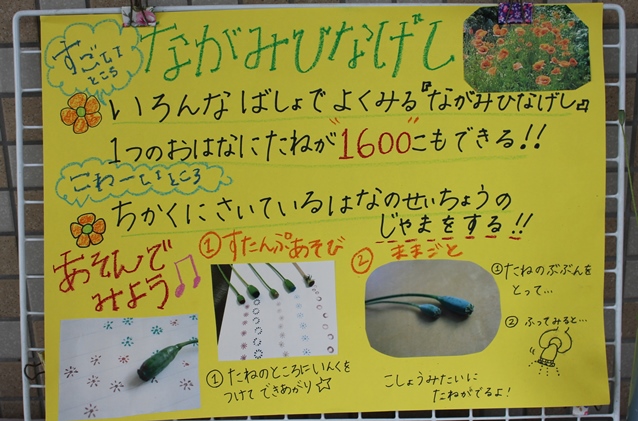 すごーいところ
ながみひなげし
いろんなばしょでよくみる『ながみひなげし』
1つのおはなにたねが"1600"こもできる!!
こわーいところ
ちかくにさいているはなのせいちょうの
じゃまをする!!
あそんで
みよう♫
①すたんぷあそび
①たねのところにいんくを
つけてできあがり☆
②ままごと
①たねのぶぶんを
とって…
②ふってみると…
こしょうみたいに
たねがでるよ!